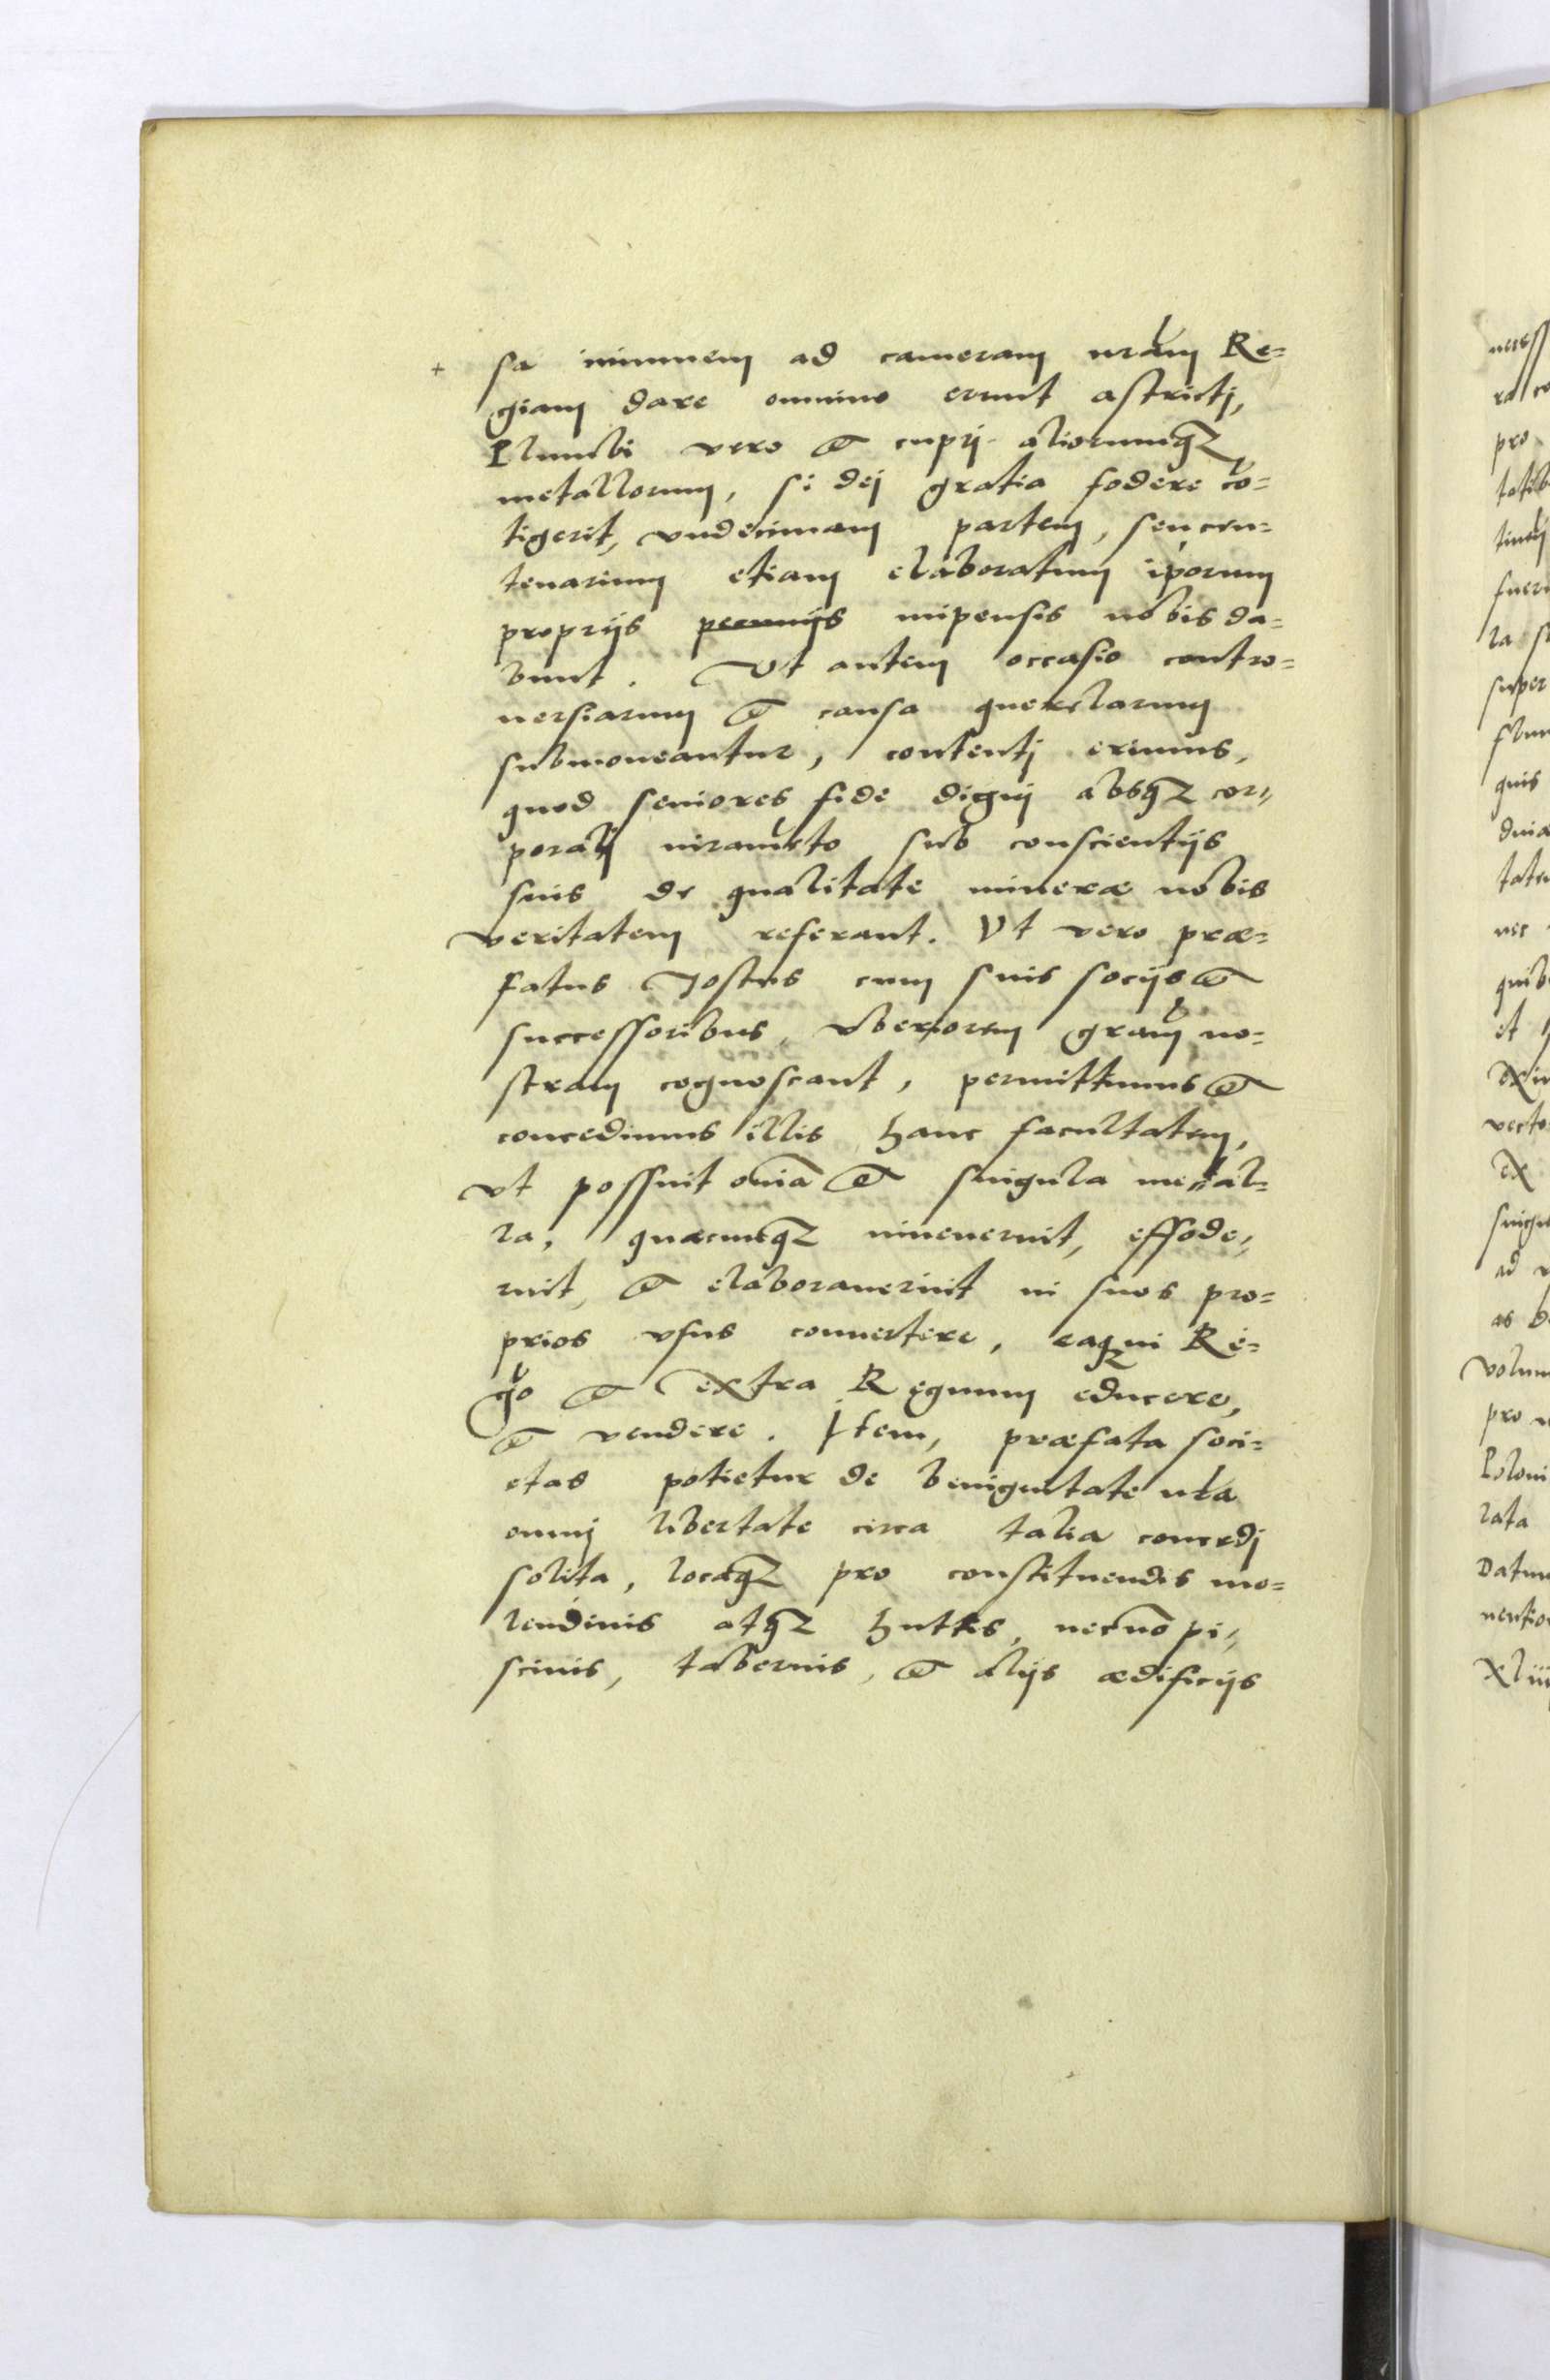 + sa nimmem ad cameram nram Re=
giam dare omnino erunt astrictj,
Plumbi vero et cuprj aliorumq3
metallorum, si dej gratia fodere cō=
tigerit, vndecimam partem, seu cen=
tenarium etiam elaboratum ip̄orum
proprijs pecunijs impensis nobis da=
bunt. Vt autem occasio contro=
uersiarum et causa querelarum
submoueantur, contentj erimus,
quod seniores fide dignj absq3 cor=
poralj iuramēto sub conscientijs
suis de qualitate mineræ nobis
veritatem referant. Vt vero præ=
fatus Jostus cum suis socijs et
successoribus, vberiorem gram no=
stram cognoscant, permittimus et
concedimus illis hanc facultatem,
vt possint omīa et singula metal=
la, quæcunq3 inuenerint, effode=
rint, et elaborauerint in suos pro=
prios vsus conuertere, eaq3 in Re=
gno et extra Regnum educere,
et vendere. Item, præfata soci=
etas potietur de benignitate nr̄a
omnj libertate circa talia concedj
solita, locaq3 pro constituendis mo=
lendinis atq3 huttis, necnō pi=
scinis, tabernis, et alijs ædificijs